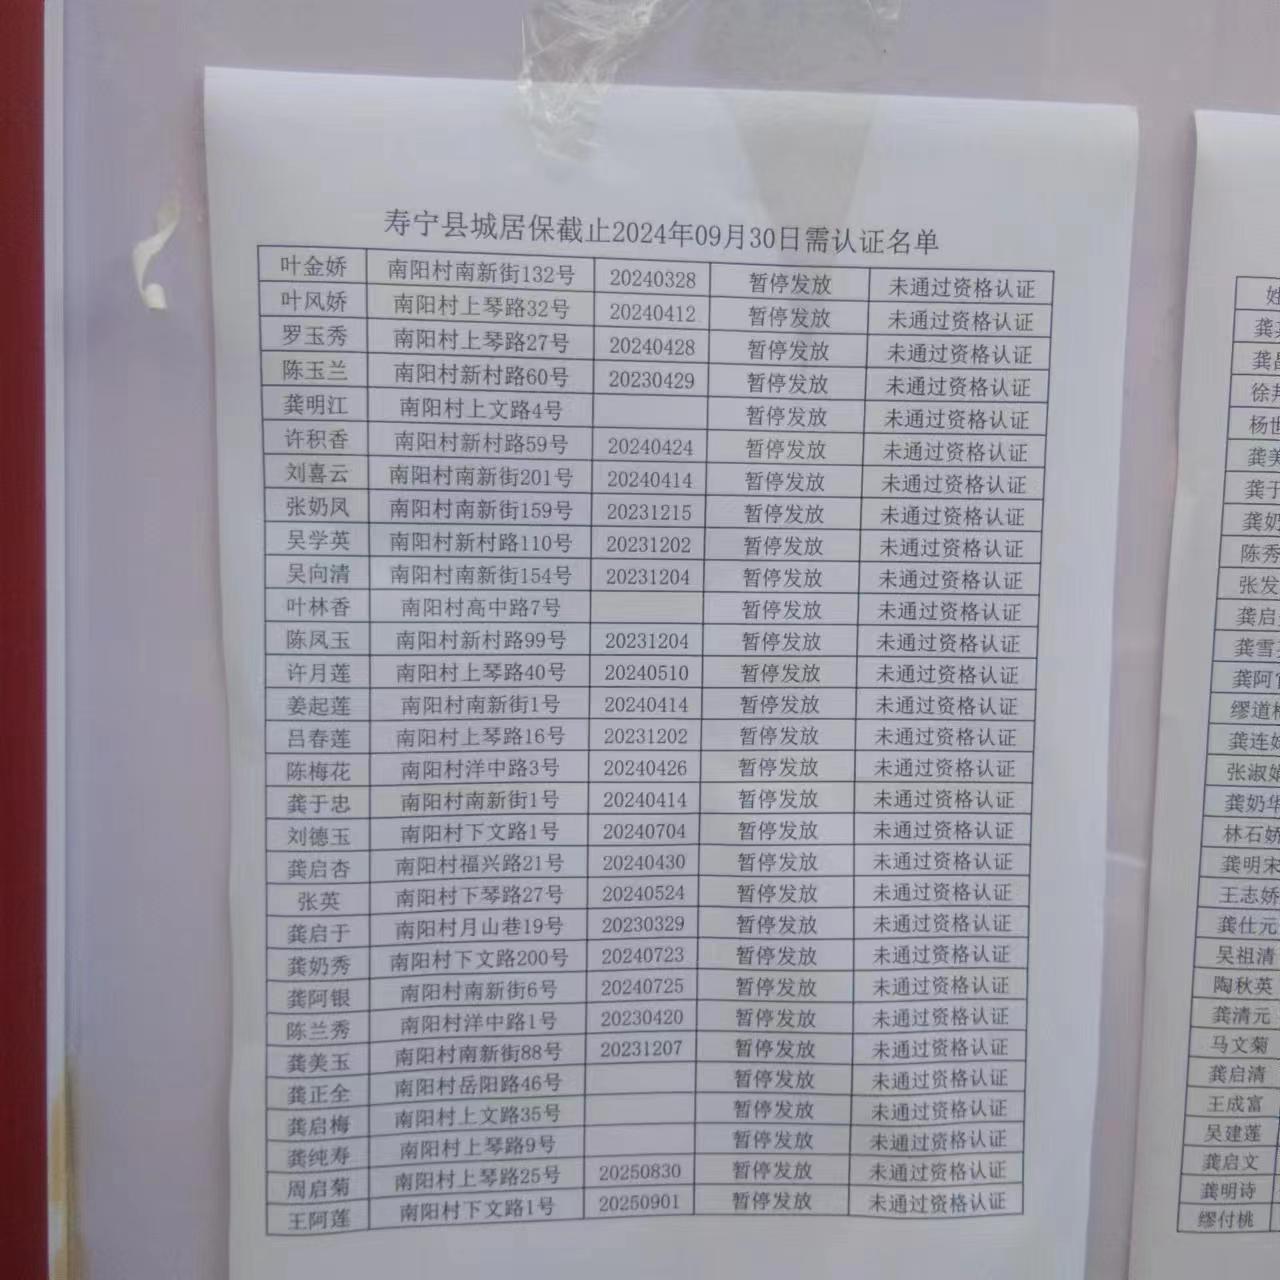 寿宁县城居保截止2024年09月30日需认证名单
叶金娇 南阳村南新街132号 20240328 暂停发放 未通过资格认证
叶风娇 南阳村上琴路32号 20240412 暂停发放 未通过资格认证
罗玉秀 南阳村上琴路27号 20240428 暂停发放 未通过资格认证
陈玉兰 南阳村新村路60号 20230429 暂停发放 未通过资格认证
龚明江 南阳村上文路4号 暂停发放 未通过资格认证
许积香 南阳村新村路59号 20240424 暂停发放 未通过资格认证
刘喜云 南阳村南新街201号 20240414 暂停发放 未通过资格认证
张奶凤 南阳村南新街159号 20231215 暂停发放 未通过资格认证
吴学英 南阳村新村路110号 20231202 暂停发放 未通过资格认证
吴向清 南阳村南新街154号 20231204 暂停发放 未通过资格认证
叶林香 南阳村高中路7号 暂停发放 未通过资格认证
陈凤玉 南阳村新村路99号 20231204 暂停发放 未通过资格认证
许月莲 南阳村上琴路40号 20240510 暂停发放 未通过资格认证
姜起莲 南阳村南新街1号 20240414 暂停发放 未通过资格认证
吕春莲 南阳村上琴路16号 20231202 暂停发放 未通过资格认证
陈梅花 南阳村洋中路3号 20240426 暂停发放 未通过资格认证
龚于忠 南阳村南新街1号 20240414 暂停发放 未通过资格认证
刘德玉 南阳村下文路1号 20240704 暂停发放 未通过资格认证
龚启杏 南阳村福兴路21号 20240430 暂停发放 未通过资格认证
张英 南阳村下琴路27号 20240524 暂停发放 未通过资格认证
龚启于 南阳村月山巷19号 20230329 暂停发放 未通过资格认证
龚奶秀 南阳村下文路200号 20240723 暂停发放 未通过资格认证
龚阿银 南阳村南新街6号 20240725 暂停发放 未通过资格认证
陈兰秀 南阳村洋中路1号 20230420 暂停发放 未通过资格认证
龚美玉 南阳村南新街88号 20231207 暂停发放 未通过资格认证
龚正全 南阳村岳阳路46号 暂停发放 未通过资格认证
龚启梅 南阳村上文路35号 暂停发放 未通过资格认证
龚纯寿 南阳村上琴路9号 暂停发放 未通过资格认证
周启菊 南阳村上琴路25号 20250830 暂停发放 未通过资格认证
王阿莲 南阳村下文路1号 20250901 暂停发放 未通过资格认证
龚
龚
徐
杨世
龚美
龚于
龚奶
陈秀
张发
龚启
龚雪
龚阿
缪道
龚连
张淑
龚奶华
林石娇
龚明宋
王志娇
龚仕元
吴祖清
陶秋英
龚清元
马文菊
龚启清
王成富
吴建莲
龚启文
龚明诗
缪付桃